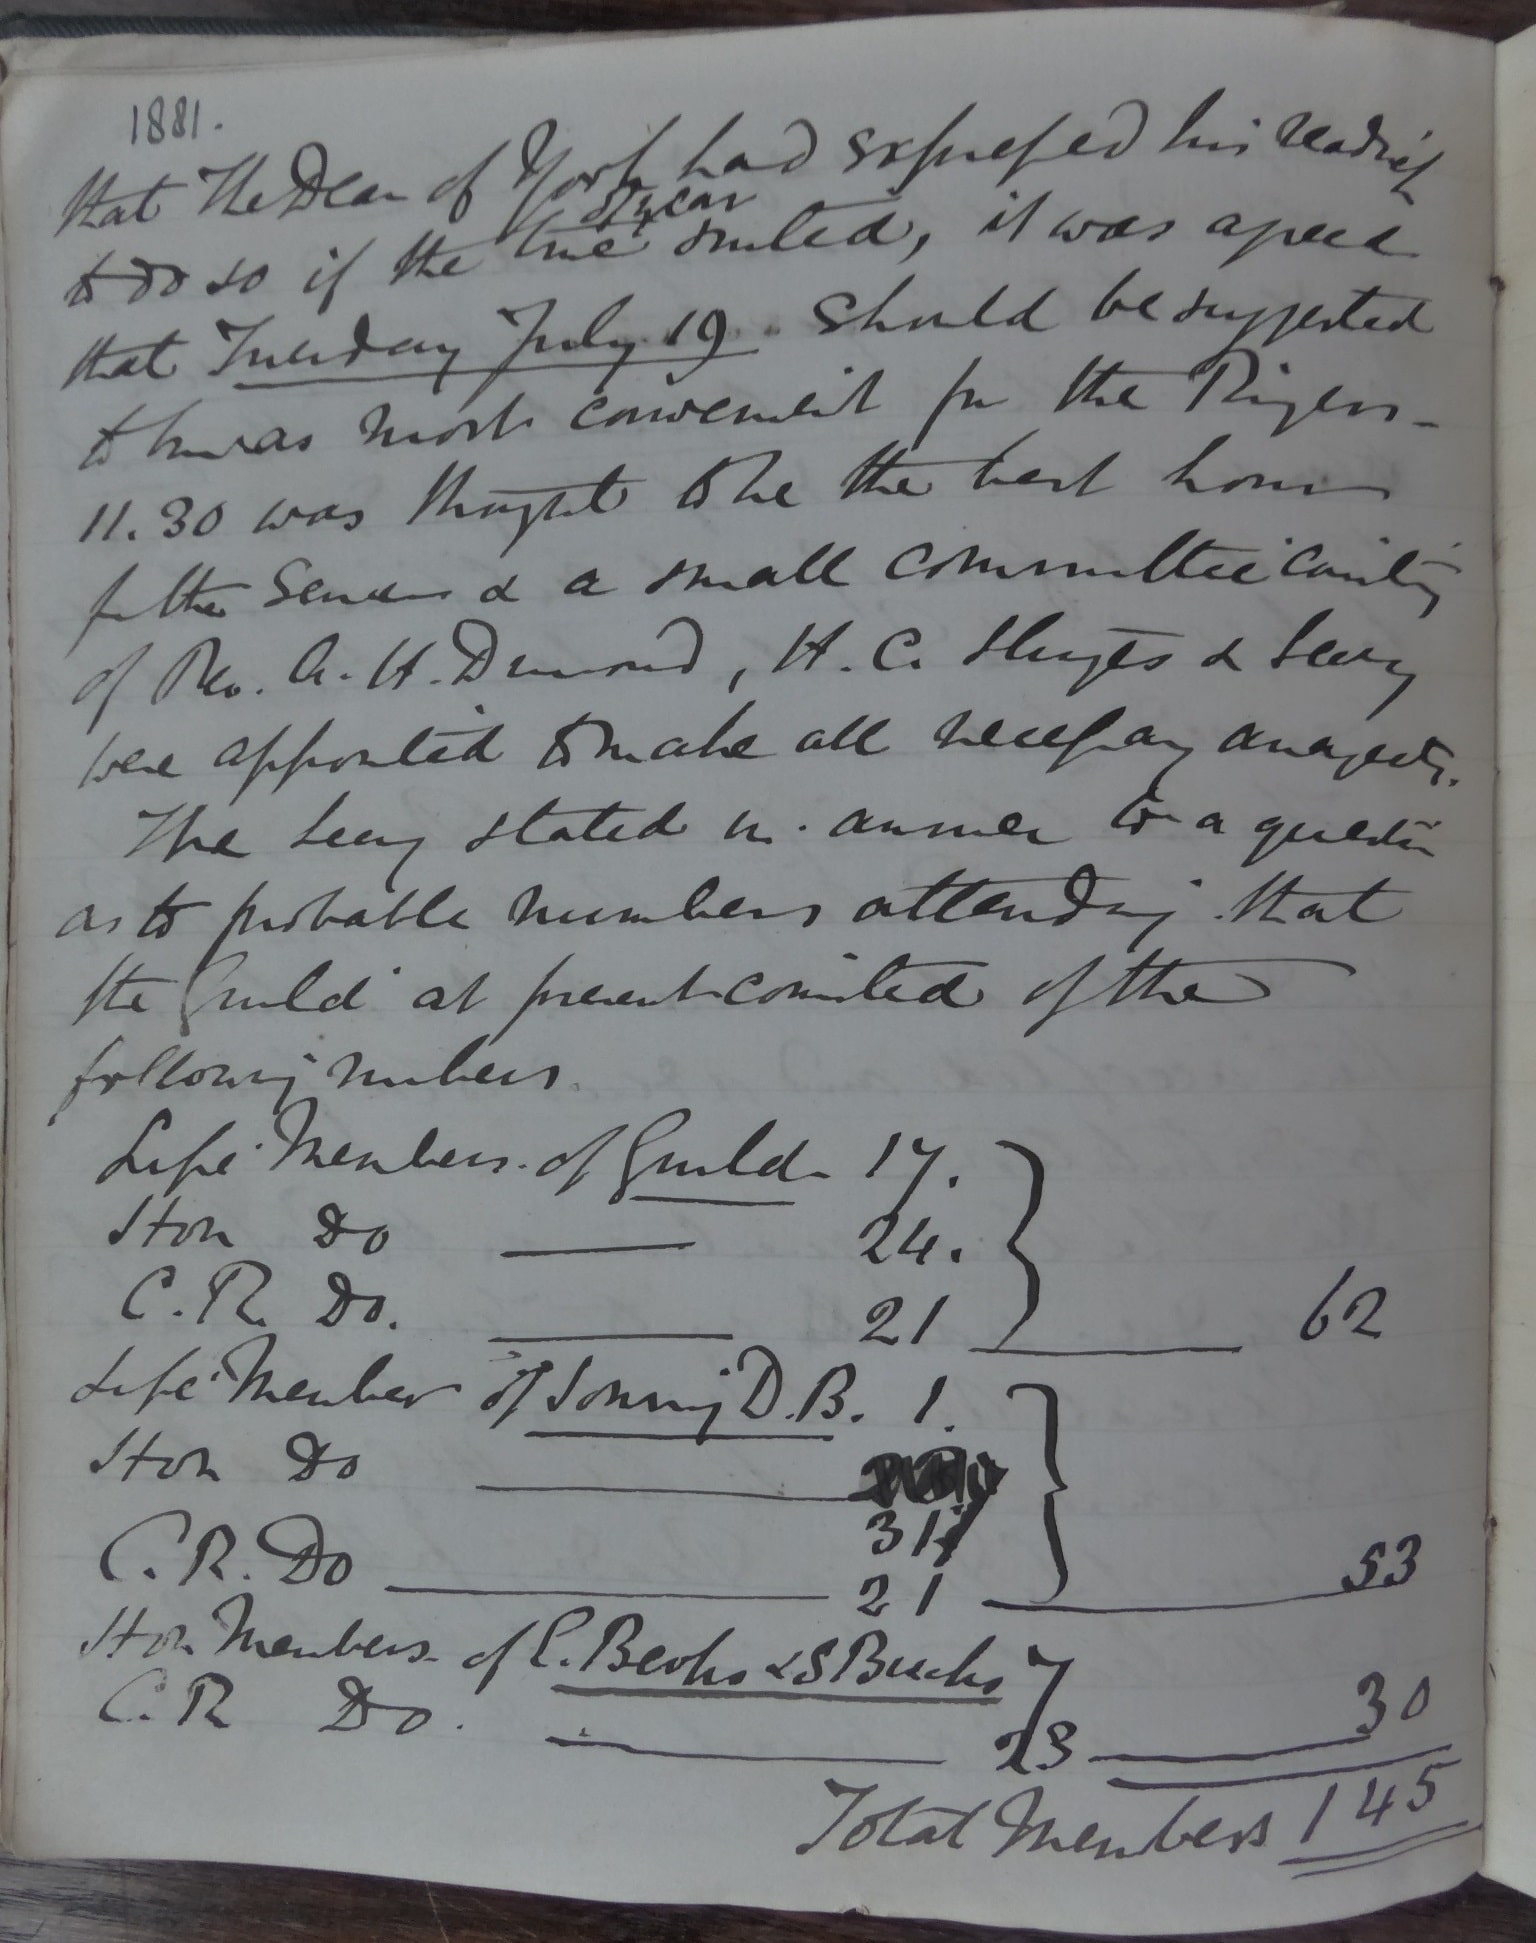 1881.
that The Dean of York had expressed his readiness
of year
to do so if the time suited, it was agreed
that Tuesday July 19. should be suggested
to him as most convenient for the Ringers -
11.30 was thought to be the best hour
for the Service & a small committee consisting
of Rev. A. H. Drummond, H. C. & Secy
were appointed to make all necessary arragents.
The Secy stated in answer to a question
as to probable numbers attending that
the Guild at present consisted of the
following numbers.
Life Members of Guild 17.
Hon Do — 24.
C.R. Do. — 21 — 62
Life Member of Sonning D.B. 1.
Hon Do —
31
C.R. Do — 21 — 53
Hon Members of E. Berks & S Bucks 7
C.R Do. — 23 — 30
Total Members 145